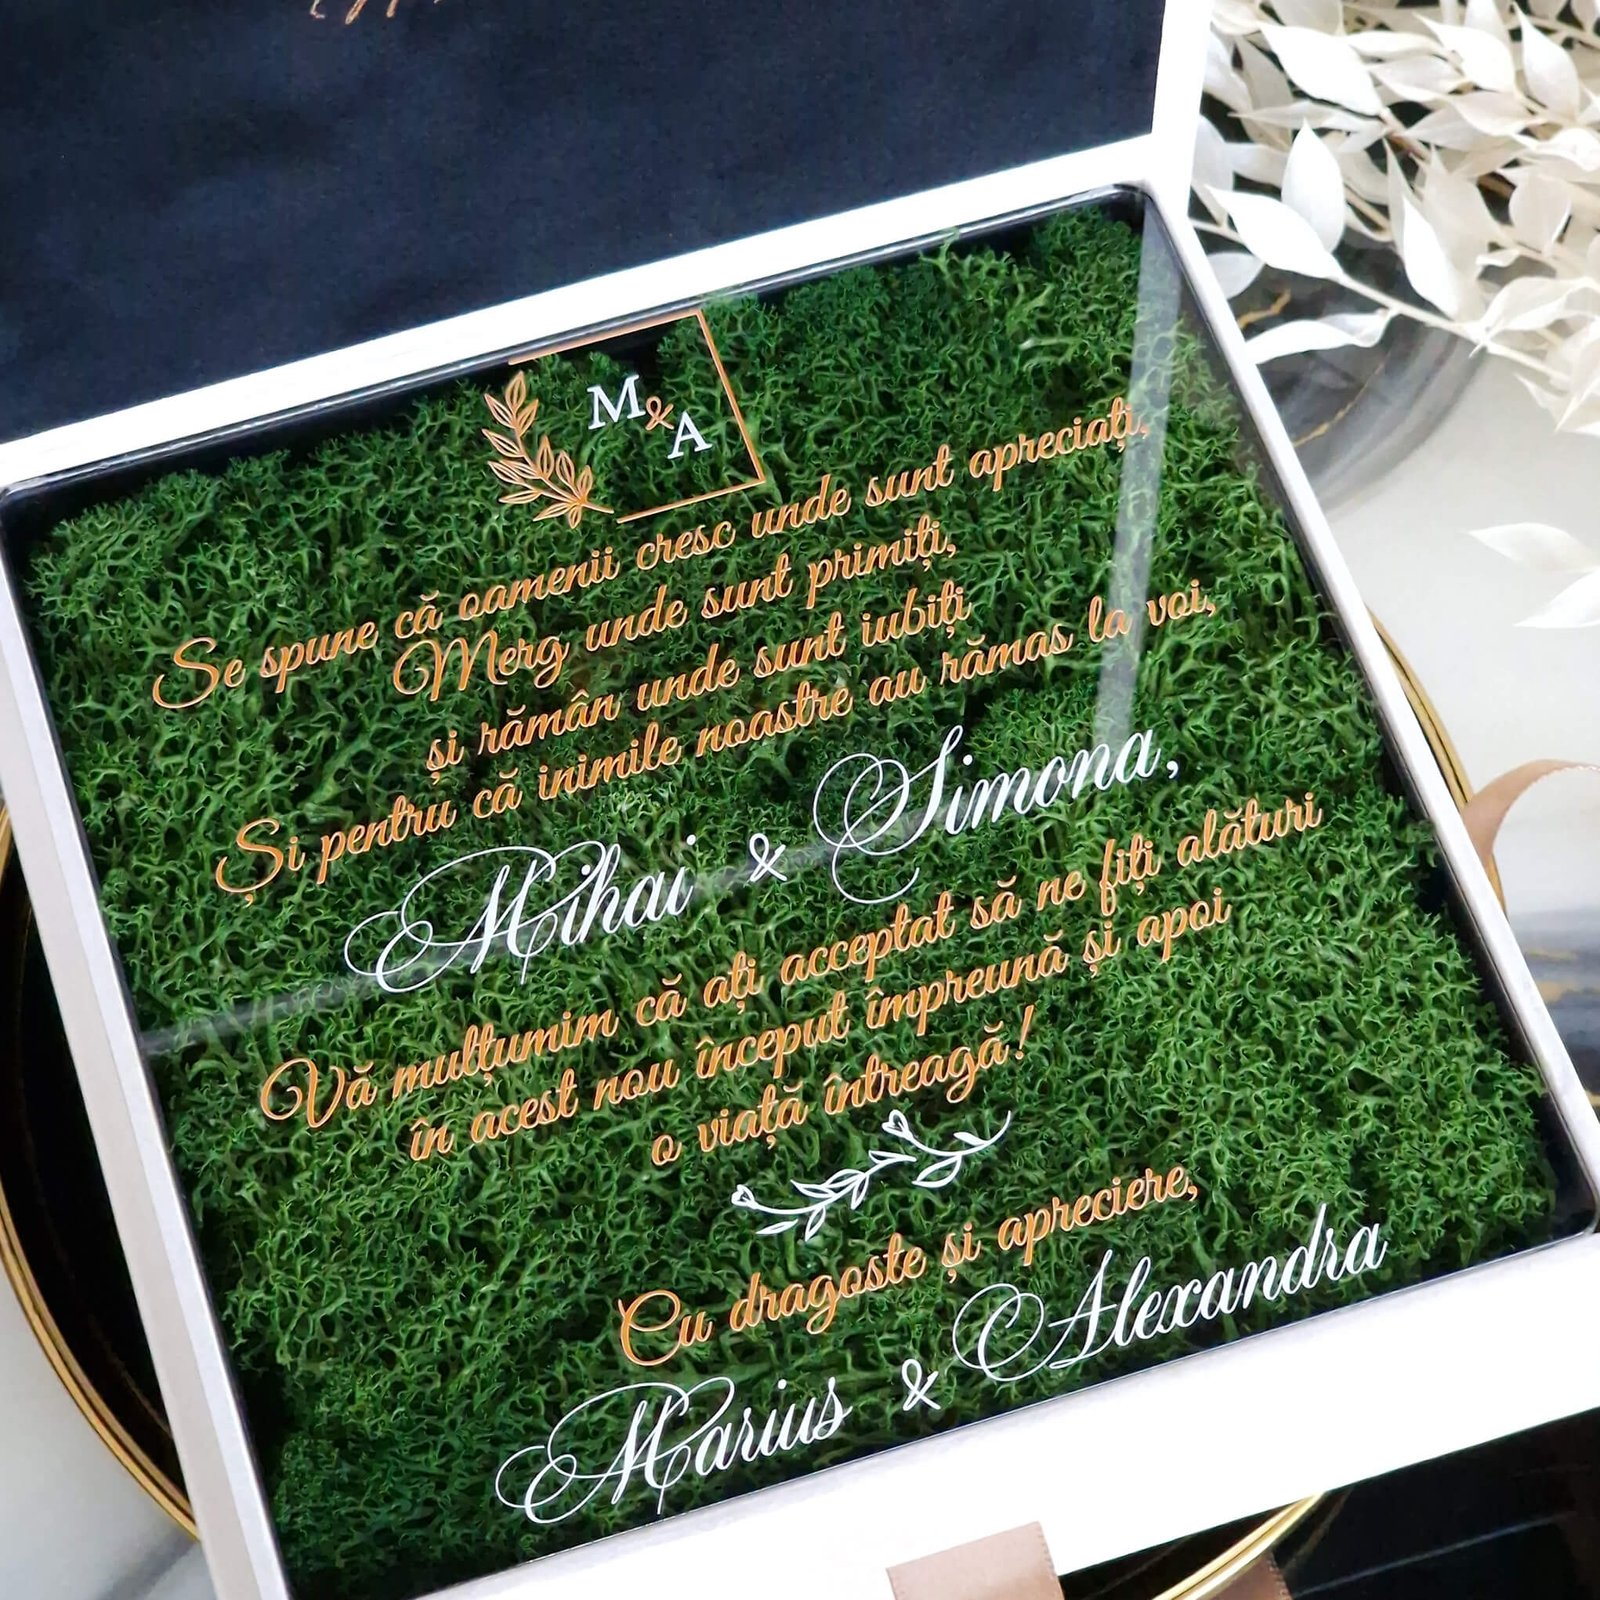 M
&
A
Se spune că oamenii cresc unde sunt apreciați,
Merg unde sunt primiți,
și rămân unde sunt iubiți
Și pentru că inimile noastre au rămas la voi,
Mihai & Simona,
Vă mulțumim că ați acceptat să ne fiți alături
în acest nou început împreună și apoi
o viață întreagă!
Cu dragoste și apreciere,
Marius & Alexandra